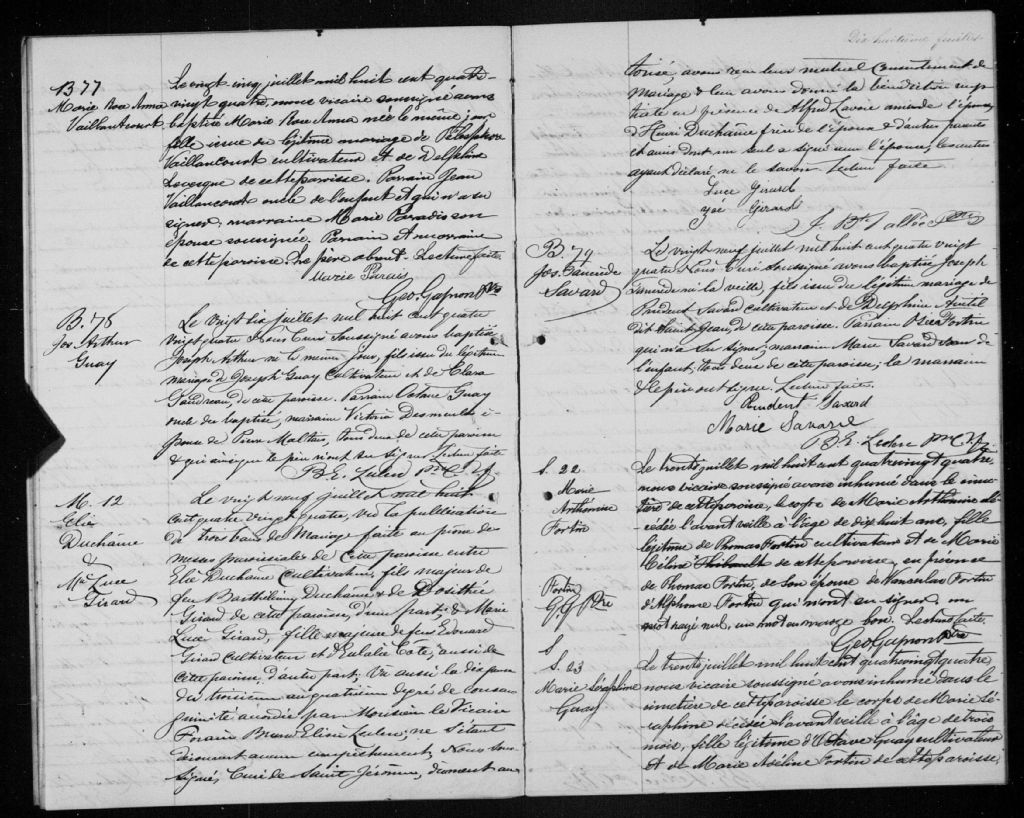 B 77
Marie Rose Anna
Vaillancourt
Le vingt cinq juillet mil huit cent quatre-
vingt quatre, nous vicaire soussigné avons
baptisé Marie Rose Anna née le même jour
fille issue du légitime mariage de
Vaillancourt cultivateur et de Delphine
Levesque de cette paroisse. Parrain Jean
Vaillancourt oncle de l'enfant et qui n'a su
signer, marraine Marie Paradis son
épouse soussignée. Parrain et marraine
de cette paroisse. Le père absent. Lecture faite.
Marie Parais
Geo. Gagnon Ptre
B. 78
Jos. Arthur
Guay
Le vingt six juillet mil huit cent quatre
vingt quatre Nous Curé Soussigné avons baptisé
Joseph Arthur né le même jour, fils issu du légitime
mariage de Joseph Guay Cultivateur et de Clara
Gaudreau, de cette paroisse. Parrain Octave Guay
oncle du baptisé, marraine Victoria Desmeules é-
pouse de Pierre Maltais, tous deux de cette paroisse
& qui ainsi que le père n'ont su signer. Lecture faite
B. E. Leclerc Ptre
M. 12
Elie
Duchême
&
Mie Luce
Girard
Le vingt neuf juillet mil huit
cent quatre vingt quatre, vu la publication
de trois bans de Mariage faite au prône de
messe paroissiales de Cette paroisse entre
Elie Duchême Cultivateur, fils majeur de
feu Barthélémy Duchême & de Dorithée
Girard de cette paroisse, d'une part; & Marie
Luce Girard, fille majeure de feu Edouard
Girard Cultivateur et d'Eulalie Côté, aussi de
cette paroisse, d'autre part; Vu aussi la dispense
du troisième au quatrième degré de consan-
guinité accordée par Monsieur le Vicaire
Forain Bruno Elisée Leclerc; ne s'étant
découvert aucun empêchement, Nous Sous-
signé, Curé de Saint Jérôme, dûment au-
Dix huitième feuillet
torisé, avons reçu leur mutuel Consentement de
Mariage & leur avons donné la bénédiction nup-
tiale en présence de Alfred Lavoie ami de l'épouse
d'Henri Duchême frère de l'époux & d'autres parents
et amis dont un seul a signé avec l'épouse, les autres
ayant déclaré ne le savoir. Lecture faite
Luce Girard
Girard
J. Bte Vallée Ptre
B. 79
Jos.
Savard
Le vingt neuf juillet mil huit cent quatre vingt
quatre Nous Curé Soussigné avons baptisé Joseph
né la veille, fils issu du légitime mariage de
Prudent Savard cultivateur et de Delphine Autil
dit Saint Jean, de cette paroisse. Parrain Fortin
qui n'a su signer; marraine Marie Savard sœur de
l'enfant, tous deux de cette paroisse; la marraine
& le père ont signé. Lecture faite.
Prudent Savard
Marie Savard
B. E. Leclerc Ptre
S. 22
Marie
Arthémise
Fortin
Le trente juillet mil huit cent quatrevingt quatre,
nous vicaire soussigné avons inhumé dans le cime-
tière de cette paroisse, le corps de Marie Arthémise dé-
cédée l'avant veille à l'âge de dix huit ans, fille
légitime de Thomas Fortin cultivateur et de Marie
Céline Thibeault de cette paroisse, en présence
de Thomas Fortin, de son épouse de Vanceslas Fortin
d'Alphonse Fortin qui n'ont su signer. un
mot rayé nul, un mot en marge bon. Lecture faite.
Fortin
G. G Ptre
Geo. Gagnon Ptre
S
S. 23
Marie Séraphine
Guay
Le trente juillet mil huit cent quatrevingt quatre,
nous vicaire soussigné avons inhumé dans le
cimetière de cette paroisse le corps de Marie Sé-
raphine décédée l'avant veille à l'âge de trois
mois, fille légitime d'Octave Guay cultivateur
et de Marie Adéline Fortin de cette paroisse,